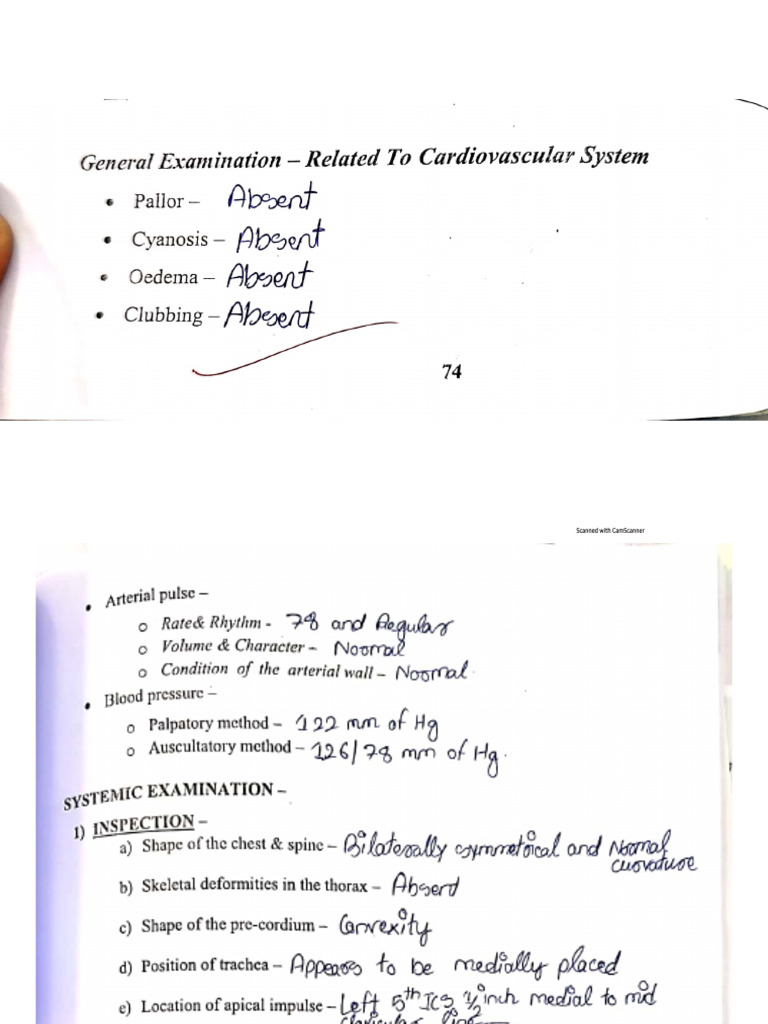 General Examination – Related To Cardiovascular System
• Pallor – Absent
• Cyanosis – Absent
• Oedema – Absent
• Clubbing – Absent
74
Scanned with CamScanner
• Arterial pulse –
o Rate& Rhythm - 78 and Regular
o Volume & Character – Normal
o Condition of the arterial wall – Normal.
• Blood pressure –
o Palpatory method – 122 mm of Hg
o Auscultatory method – 126/78 mm of Hg.
SYSTEMIC EXAMINATION –
1) INSPECTION –
a) Shape of the chest & spine – Bilaterally symmetrical and Normal
curvature
b) Skeletal deformities in the thorax – Absent
c) Shape of the pre-cordium – Convexity
d) Position of trachea – Appears to be medially placed
e) Location of apical impulse – Left 5th ICS 1/2 inch medial to mid
clavicular line